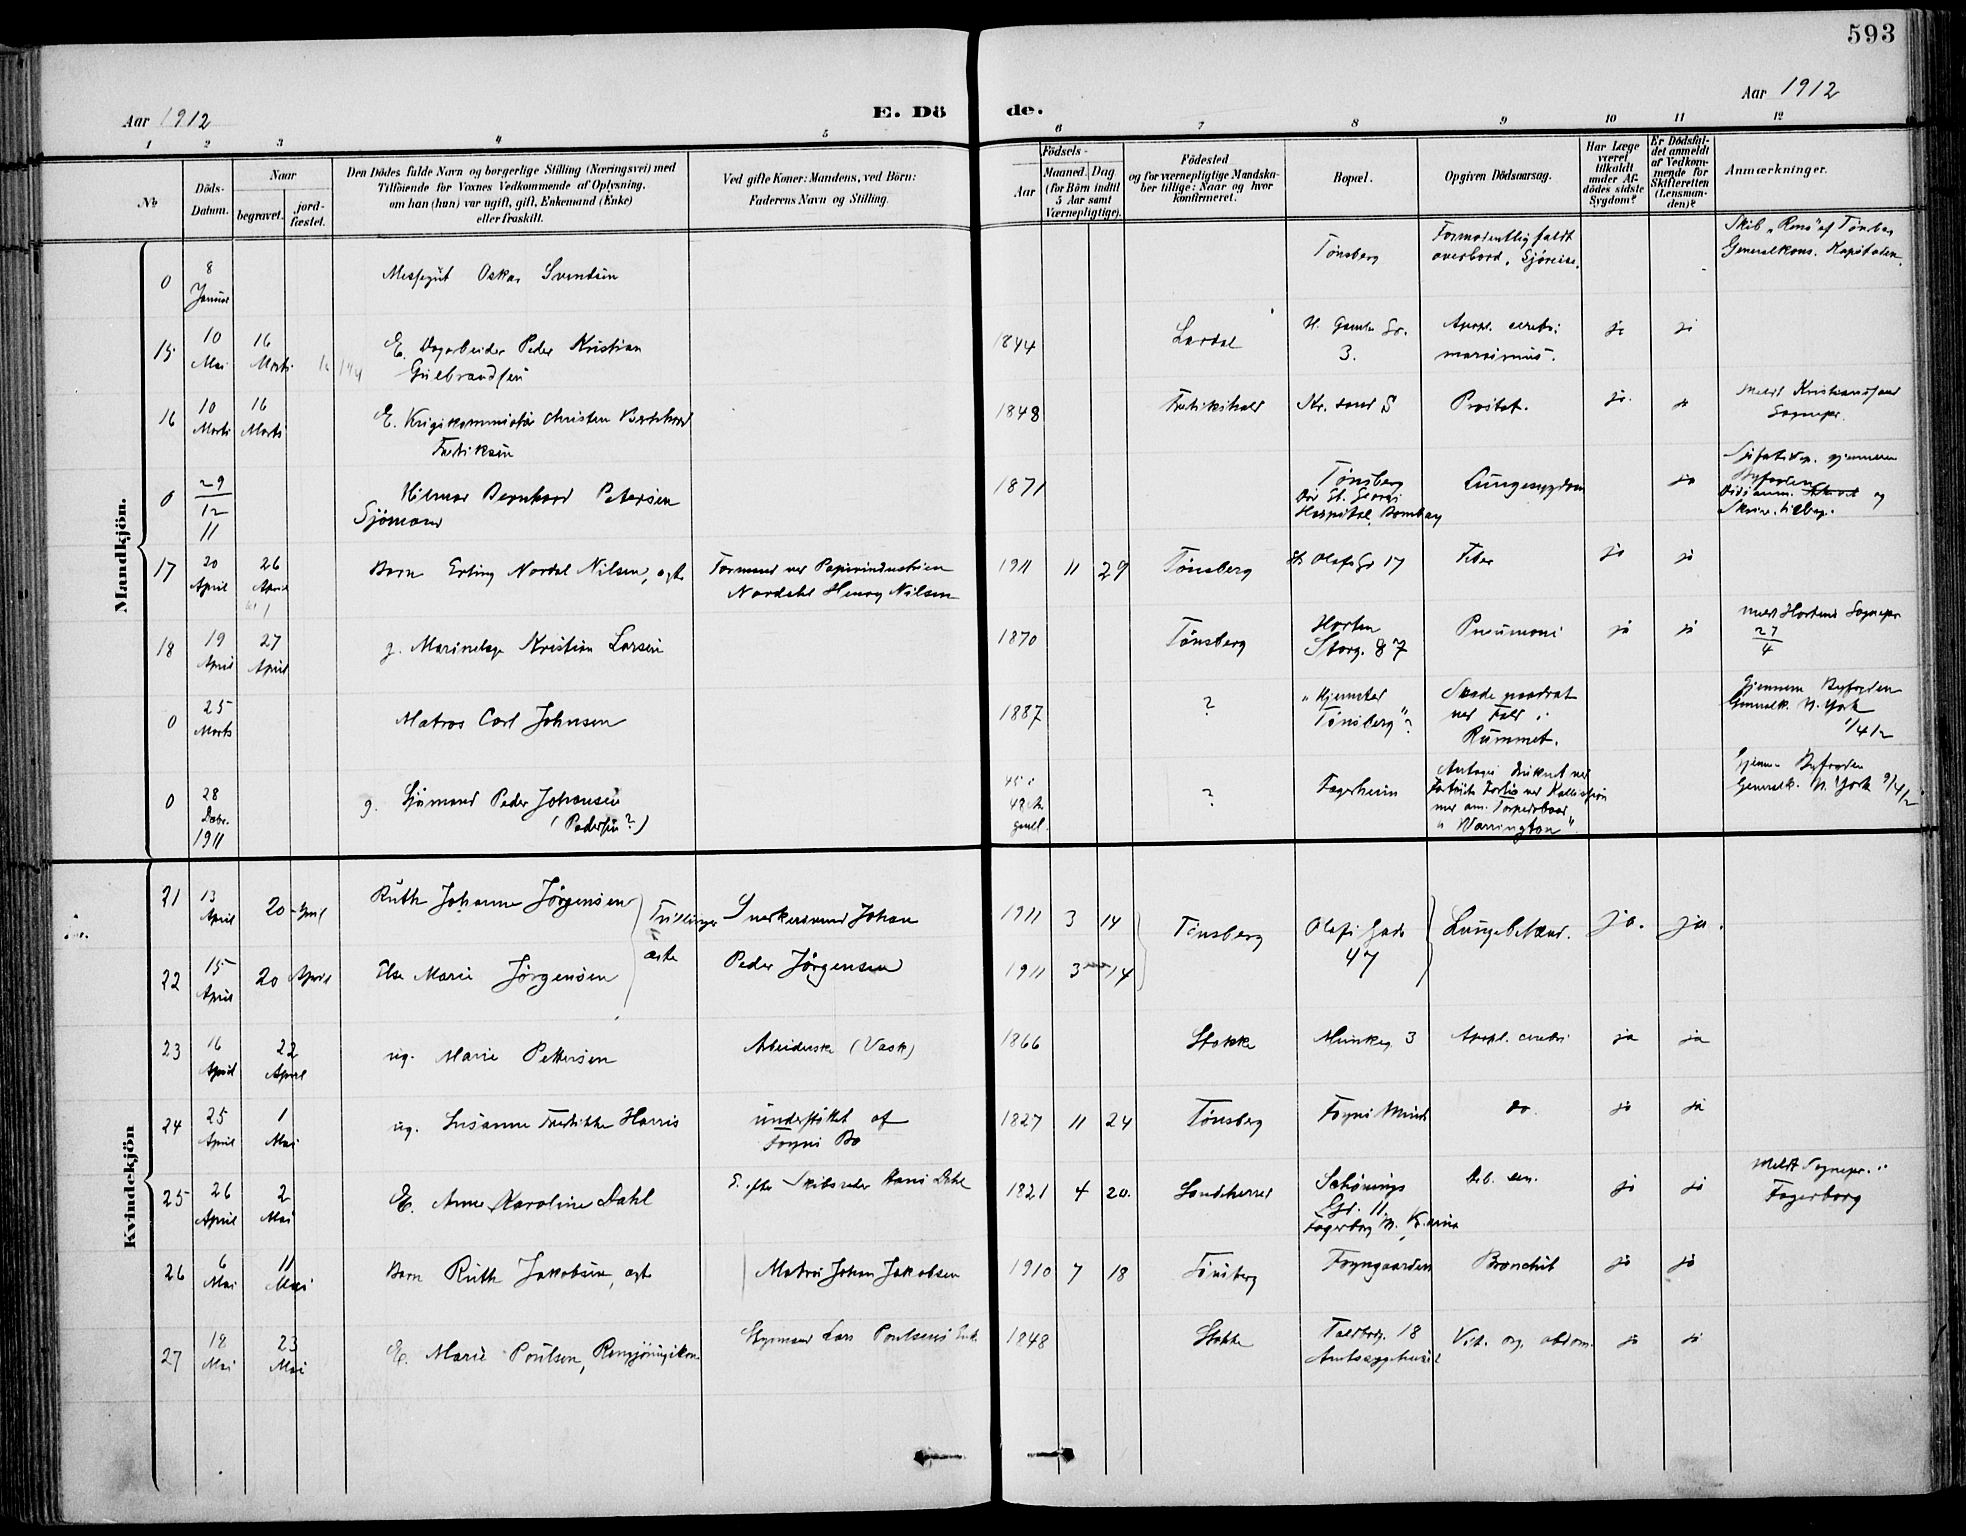 593
Aar 1912
E. Dö
de.
Aar 1912
1 2 3 4 5 6 7 8 9 10 11 12
No
Döds-Datum.
Naar
begravet.
jord-fæstet.
Den Dödes fulde Navn og borgerlige Stilling (Næringsvei) med
Tilföiende for Voxnes Vedkommende af Oplysning.
om han (hun) var ugift, gift, Enkemand (Enke)
eller fraskilt.
Ved gifte Koner: Mandens, ved Börn:
Faderens Navn og Stilling.
Födsels-
Aar
Maaned.
Dag
(for Börn indtil
5 Aar samt
Værnepligtige).
Födested
og for værnepligtige Mandska-
ber tillige: Naar og hvor
konfirmeret.
Bopæl.
Opgiven Dödsaarsag.
Har Læge
været
tilkaldt
under Af-
dödes sidste
Sygdom?
Er Dödsfal-
det anmeldt
af Vedkom-
mende for
Skifteretten
(Lensman-
den)?
Anmærkninger.
Mandkjön.
0 8 Januar Messegut Oskar Svendsen Tønsberg Formodentlig faldt
overbord, Sjøreise.
Skib "Reno" af Tønsberg
Generalkons. Kapstaden.
15 10 Mai 16 Marts E. Dagarbeider Peder Kristian
Gulbrandsen
1844 Lardal H. Gamle Gr.
3.
Apopl. cerebri
marasmus.
ja ja
16 10 Marts 16 Marts E. Krigskommissær Christen
Fredriksen
1848 Fredrikshald Kr.sand S Prostat. ja ja
Meldt Kristianssand
Sognepr.
0 29/12 11 Hilmar Bernhard Petersen
Sjømand
1871 Tønsberg
St. Georgs
Hospital, Bombay
Lungesygdom ja
gjennem
Byfogden
og
17 20 April 26 April Barn Erling Nordal Nilsen, egte
Formand ved Papirindustrien
Nordahl Henry Nilsen
1911 11 29 Tønsberg St. Olafs Gr 17 Feber ja ja
18 19 April 27 April g. Kristian Larsen 1870 Tønsberg Horten
Storg. 87
Pneumoni ja ja
meldt Hortens Sognepr
27/4
0 25 Marts Matros Carl Johnsen 1887 ? "Hjemsted
Tønsberg"?
Skade paadrat
ved Fald i
Rummet.
Gjennem Byfogden
Generalk. N. York
1/4 12
0 28 Decbr. 1911 g. Sjømand Peder Johansen
(Pedersen?)
45 i
48 Ar
gml.
? Fagerheim
Antages druknet ved
ved Kollission
med am. Torpedobaad
"Warrington"
Gjennem Byfogden
Generalk. N. York 9/4 12
Kvindekjön
21 13 April 20 April Ruth Johanne Jørgensen
Trillinger
ægte
Snekkersvend Johan
1911 3 14 Tønsberg Olafs Gade
47
Lungebetænd. ja. ja.
22 15 April 20 April Else Marie Jørgensen Peder Jørgensen 1911 3 14
23 16 April 22 April ug. Marie Pettersen Arbeiderske (Vask) 1866 Stokke Munkeg. 3 Apopl. cerebri ja ja
24 25 April 1 Mai ug. Susanne Fredrikke Harris understøttet af
Foyns Bo
1827 11 24 Tønsberg Foyns Minde do. ja ja
25 26 April 2 Mai E. Anne Karoline Dahl E. efter Skibsreder Hans Dahl 1821 4 20. Sandeherred
Schønings
Gr. 11
Fagerborg M. Kr.ania
Deb. sen. ja ja
Meldt Sognepr. i
Fagerborg
26 6 Mai 11 Mai Barn Ruth Jakobsen, egte Matros Johan Jakobsen 1910 7 18 Tønsberg Foyngaarden Bronchit ja ja
27 18 Mai 23 Mai E. Marie Poulsen, Rengjøringskone Styrmand Lars Poulsens Enke 1848 Stokke
18
Amtssygehuset
Vit. org. abdom. ja ja